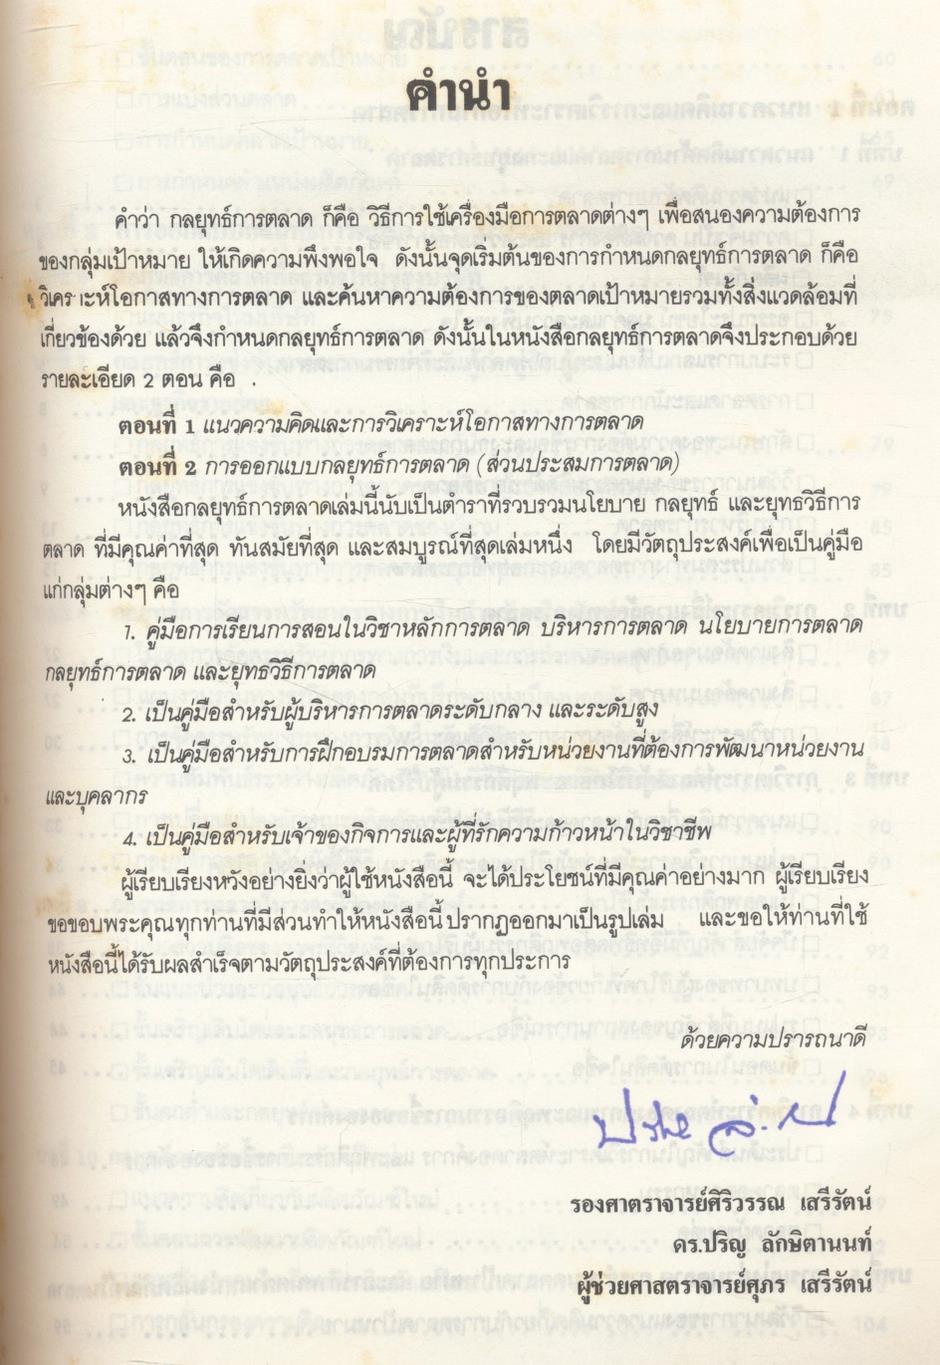 คำนำ
คำว่า กลยุทธ์การตลาด ก็คือ วิธีการใช้เครื่องมือการตลาดต่างๆ เพื่อสนองความต้องการ
ของกลุ่มเป้าหมาย ให้เกิดความพึงพอใจ ดังนั้นจุดเริ่มต้นของการกำหนดกลยุทธ์การตลาด ก็คือ
วิเคราะห์โอกาสทางการตลาด และค้นหาความต้องการของตลาดเป้าหมายรวมทั้งสิ่งแวดล้อมที่
เกี่ยวข้องด้วย แล้วจึงกำหนดกลยุทธ์การตลาด ดังนั้นในหนังสือกลยุทธ์การตลาดจึงประกอบด้วย
รายละเอียด 2 ตอน คือ
ตอนที่ 1 แนวความคิดและการวิเคราะห์โอกาสทางการตลาด
ตอนที่ 2 การออกแบบกลยุทธ์การตลาด (ส่วนประสมการตลาด)
หนังสือกลยุทธ์การตลาดเล่มนี้นับเป็นตำราที่รวบรวมนโยบาย กลยุทธ์ และยุทธวิธีการ
ตลาด ที่มีคุณค่าที่สุด ทันสมัยที่สุด และสมบูรณ์ที่สุดเล่มหนึ่ง โดยมีวัตถุประสงค์เพื่อเป็นคู่มือ
แก่กลุ่มต่างๆ คือ
1. คู่มือการเรียนการสอนในวิชาหลักการตลาด บริหารการตลาด นโยบายการตลาด
กลยุทธ์การตลาด และยุทธวิธีการตลาด
2. เป็นคู่มือสำหรับผู้บริหารการตลาดระดับกลาง และระดับสูง
3. เป็นคู่มือสำหรับการฝึกอบรมการตลาดสำหรับหน่วยงานที่ต้องการพัฒนาหน่วยงาน
และบุคลากร
4. เป็นคู่มือสำหรับเจ้าของกิจการและผู้ที่รักความก้าวหน้าในวิชาชีพ
ผู้เรียบเรียงหวังอย่างยิ่งว่าผู้ใช้หนังสือนี้ จะได้ประโยชน์ที่มีคุณค่าอย่างมาก ผู้เรียบเรียง
ขอขอบพระคุณทุกท่านที่มีส่วนทำให้หนังสือนี้ปรากฏออกมาเป็นรูปเล่ม และขอให้ท่านที่ใช้
หนังสือนี้ได้รับผลสำเร็จตามวัตถุประสงค์ที่ต้องการทุกประการ
ด้วยความปรารถนาดี
รองศาตราจารย์ศิริวรรณ เสรีรัตน์
ดร.ปริญ ลักษิตานนท์
ผู้ช่วยศาสตราจารย์ศุภร เสรีรัตน์